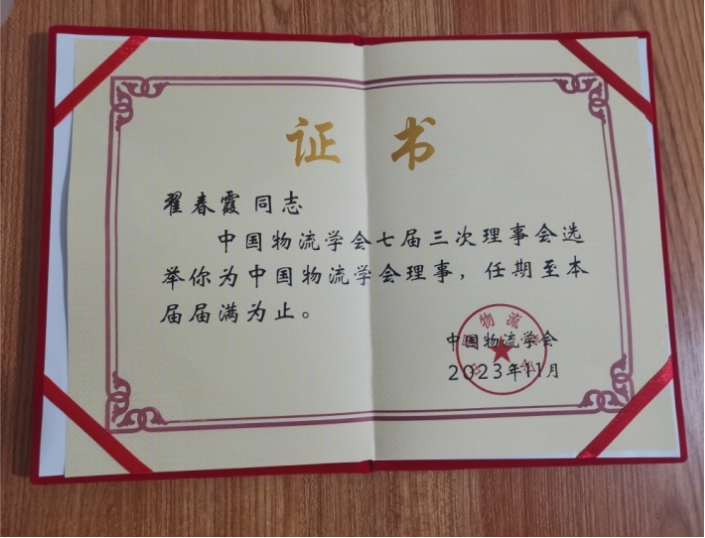 证 书
翟春霞同志
中国物流学会七届三次理事会选
举你为中国物流学会理事，任期至本
届届满为止。
物流
中国物流学会
2023年11月